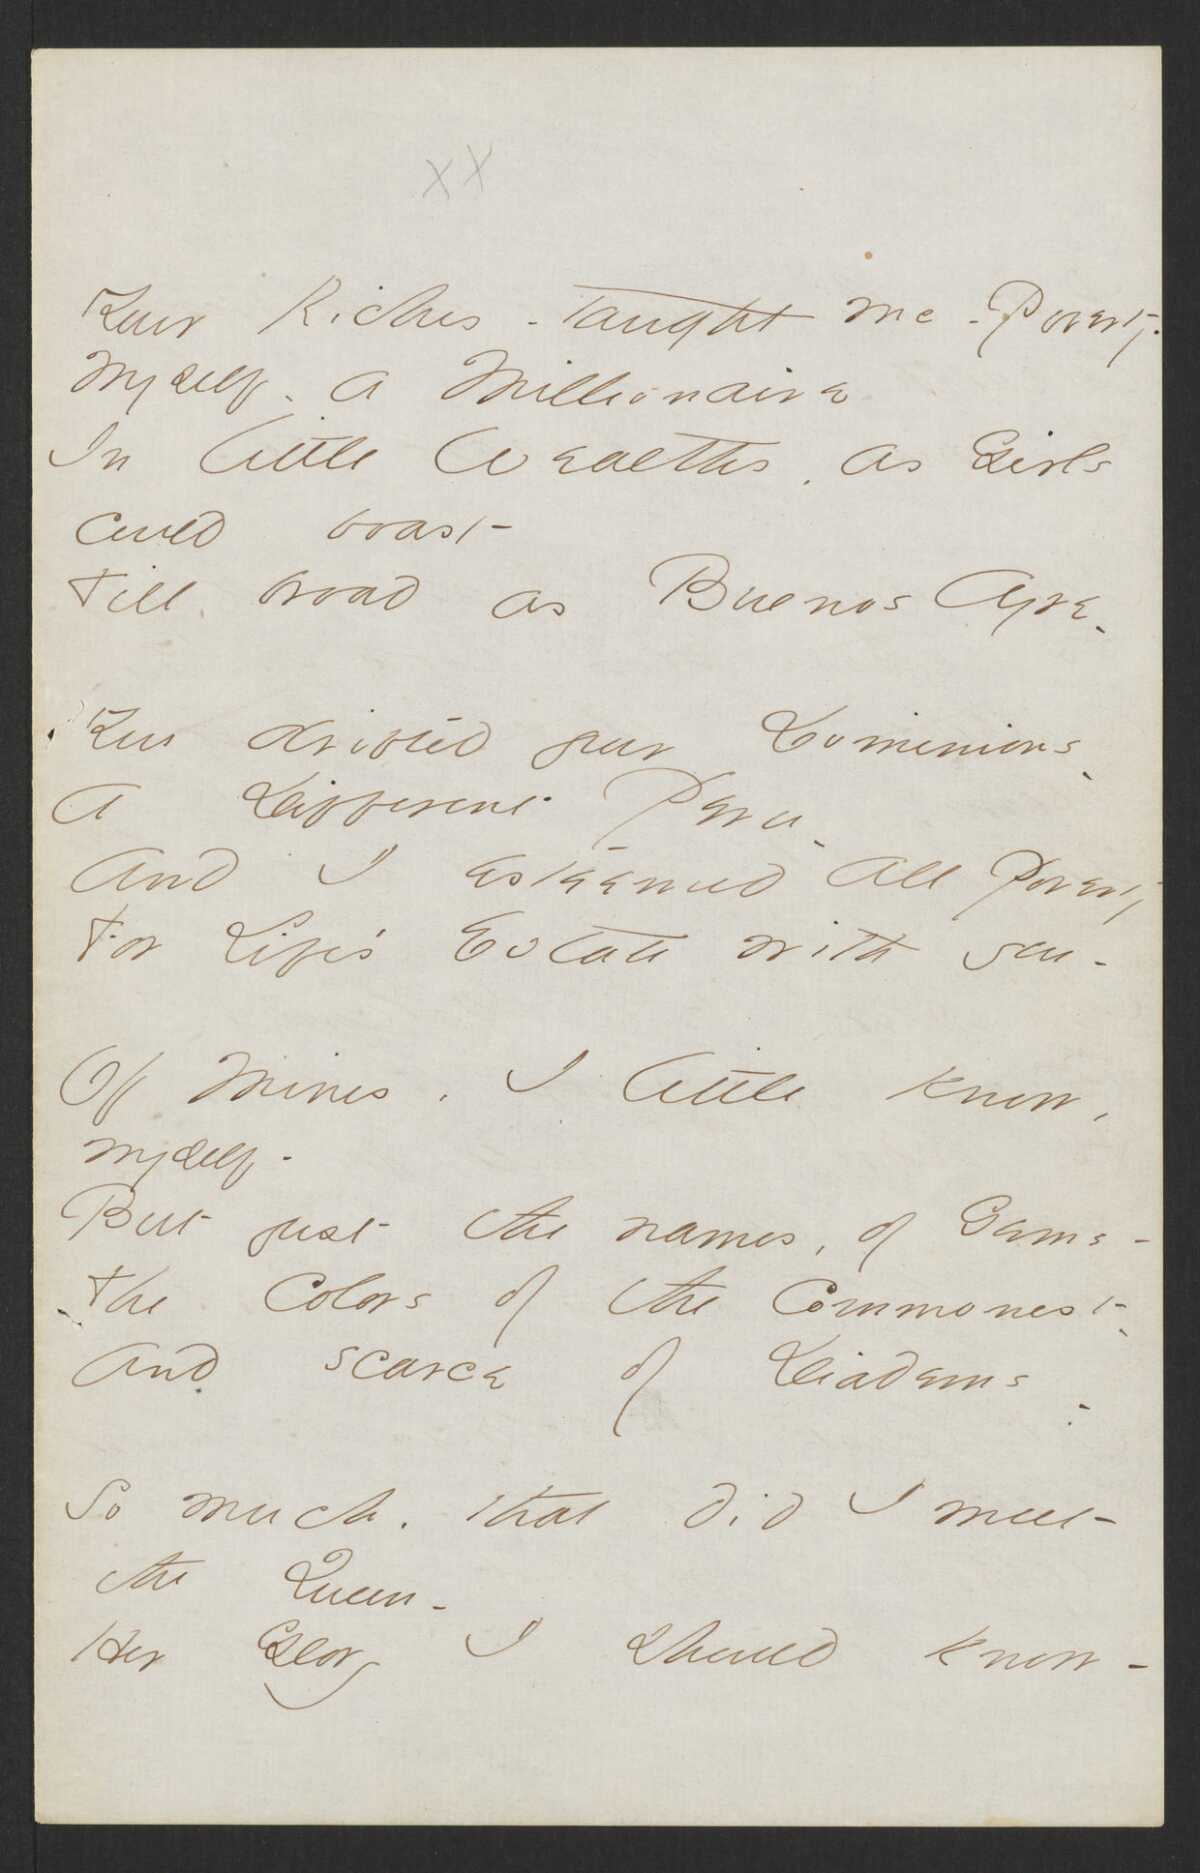 XX
Your Riches - taught me - Poverty.
Myself - a Millionaire
In little Wealths, as Girls
could boast
Till broad as Buenos Ayre -
You drifted your Dominions -
A Different Peru -
And I esteemed all Poverty
For Life's Estate with you -
Of Mines, I little know,
myself -
But just the names, of Gems -
The Colors of the Commonest -
And scarce of Diadems -
So much, that did I meet
the Queen -
Her Glory I should know -